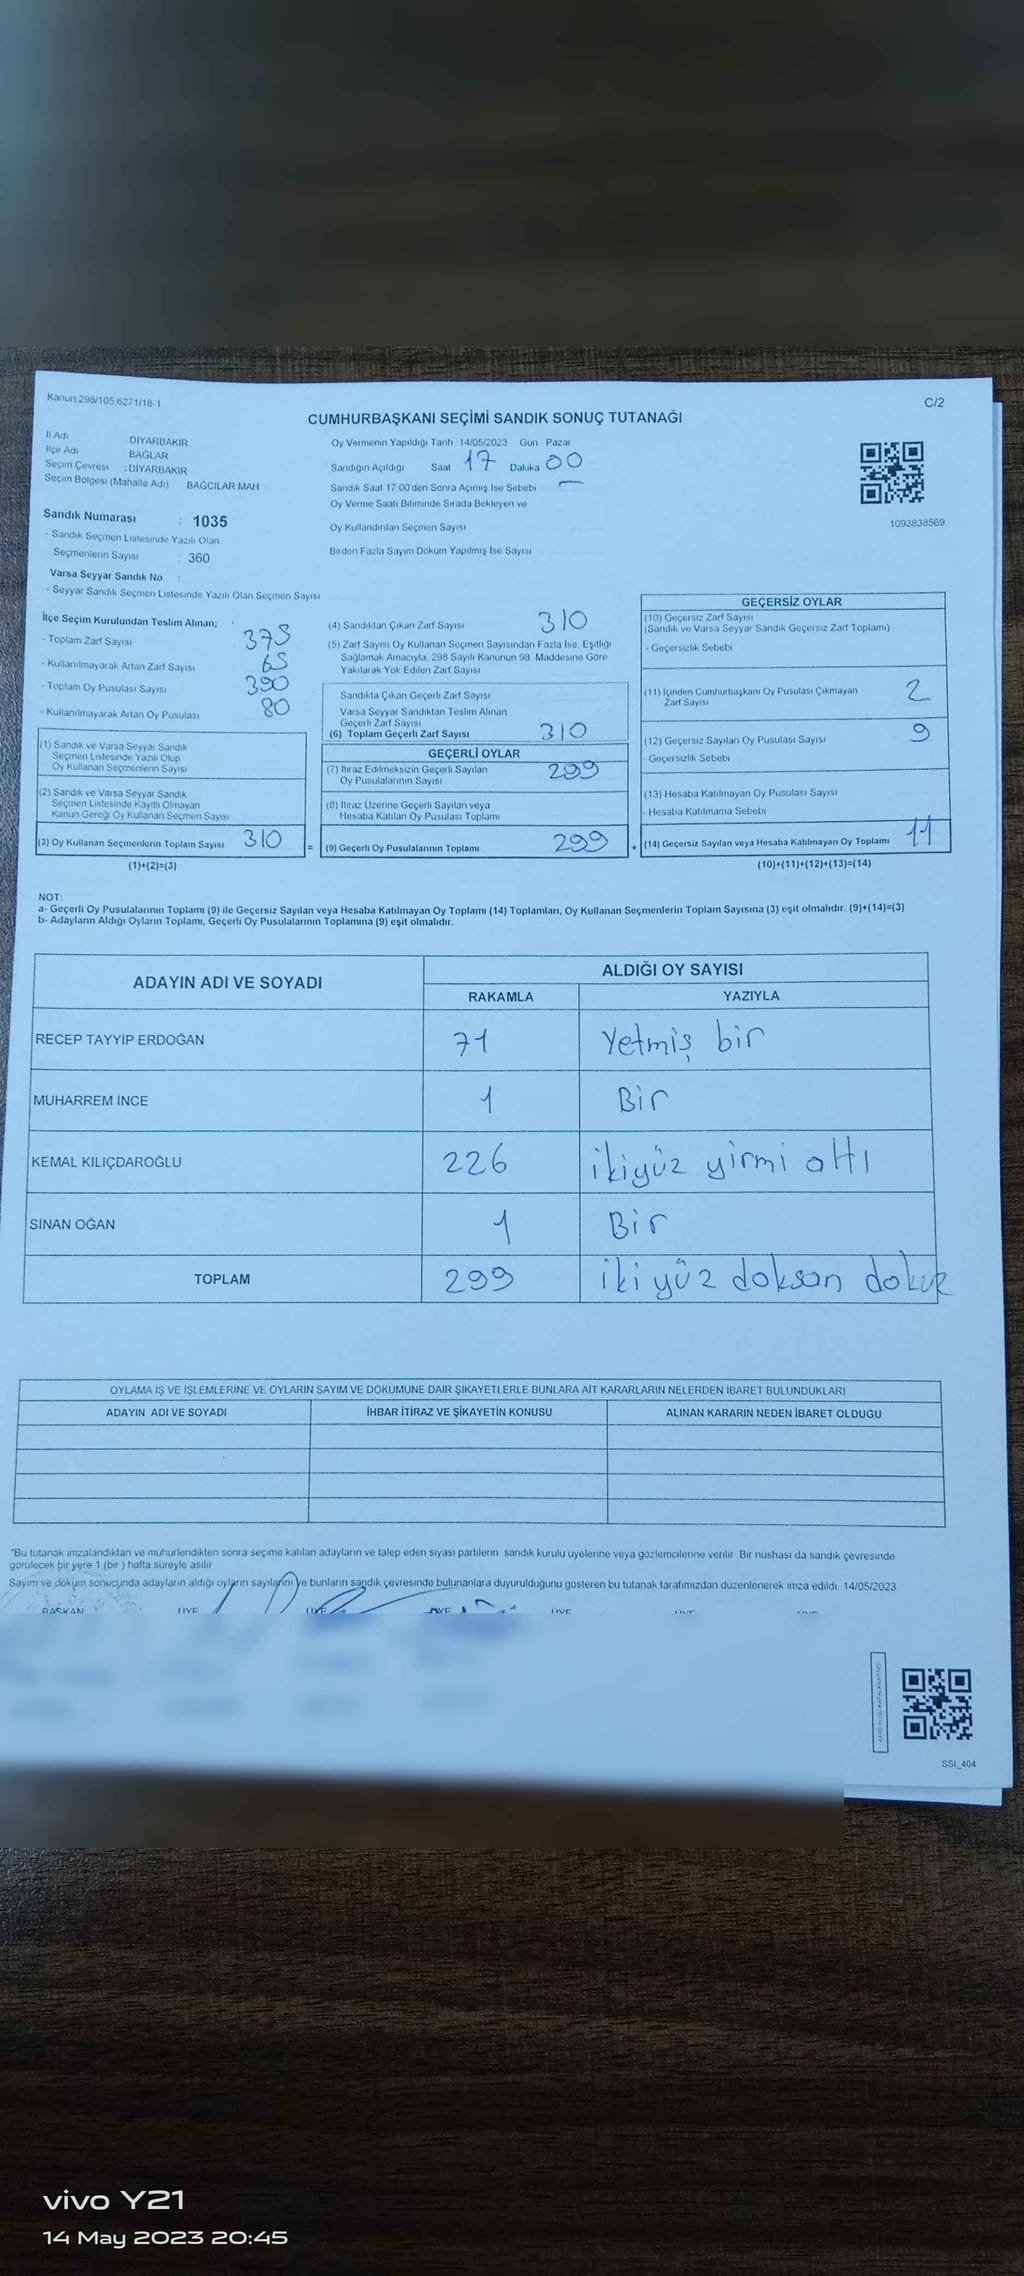 Kanun:298/105,6271/18-1
C/2
CUMHURBAŞKANI SEÇİMİ SANDIK SONUÇ TUTANAĞI
İl Adı DİYARBAKIR
İlçe Adı BAĞLAR
Seçim Çevresi : DİYARBAKIR
Seçim Bölgesi (Mahalle Adı) BAĞCILAR MAH
Sandık Numarası : 1035
- Sandık Seçmen Listesinde Yazılı Olan
Seçmenlerin Sayısı : 360
Varsa Seyyar Sandık No :
- Seyyar Sandık Seçmen Listesinde Yazılı Olan Seçmen Sayısı
Oy Vermenin Yapıldığı Tarih 14/05/2023 Gün Pazar
Sandığın Açıldığı Saat 17 Dakika 00
Sandık Saat 17:00'den Sonra Açımış İse Sebebi —
Oy Verme Saati Bitiminde Sırada Bekleyen ve
Oy Kullandırılan Seçmen Sayısı
Birden Fazla Sayım Döküm Yapılmış İse Sayısı
1093838569
İlçe Seçim Kurulundan Teslim Alınan;
- Toplam Zarf Sayısı 375
- Kullanılmayarak Artan Zarf Sayısı 65
- Toplam Oy Pusulası Sayısı 390
- Kullanılmayarak Artan Oy Pusulası 80
(1) Sandık ve Varsa Seyyar Sandık
Seçmen Listesinde Yazılı Olup
Oy Kullanan Seçmenlerin Sayısı
(2) Sandık ve Varsa Seyyar Sandık
Seçmen Listesinde Kayıtlı Olmayan
Kanun Gereği Oy Kullanan Seçmen Sayısı
(3) Oy Kullanan Seçmenlerin Toplam Sayısı 310
(1)+(2)=(3)
(4) Sandıktan Çıkan Zarf Sayısı 310
(5) Zarf Sayısı Oy Kullanan Seçmen Sayısından Fazla İse, Eşitliği
Sağlamak Amacıyla, 298 Sayılı Kanunun 98. Maddesine Göre
Yakılarak Yok Edilen Zarf Sayısı
Sandıkta Çıkan Geçerli Zarf Sayısı
Varsa Seyyar Sandıktan Teslim Alınan
Geçerli Zarf Sayısı
(6) Toplam Geçerli Zarf Sayısı 310
GEÇERLİ OYLAR
(7) İtiraz Edilmeksizin Geçerli Sayılan
Oy Pusulalarının Sayısı 299
(8) İtiraz Üzerine Geçerli Sayılan veya
Hesaba Katılan Oy Pusulası Toplamı
= (9) Geçerli Oy Pusulalarının Toplamı 299
GEÇERSİZ OYLAR
(10) Geçersiz Zarf Sayısı
(Sandık ve Varsa Seyyar Sandık Geçersiz Zarf Toplamı)
- Geçersizlik Sebebi
(11) İçinden Cumhurbaşkanı Oy Pusulası Çıkmayan
Zarf Sayısı 2
(12) Geçersiz Sayılan Oy Pusulası Sayısı 9
- Geçersizlik Sebebi
(13) Hesaba Katılmayan Oy Pusulası Sayısı
- Hesaba Katılmama Sebebi
+ (14) Geçersiz Sayılan veya Hesaba Katılmayan Oy Toplamı 11
(10)+(11)+(12)+(13)=(14)
NOT:
a- Geçerli Oy Pusulalarının Toplamı (9) ile Geçersiz Sayılan veya Hesaba Katılmayan Oy Toplamı (14) Toplamları, Oy Kullanan Seçmenlerin Toplam Sayısına (3) eşit olmalıdır. (9)+(14)=(3)
b- Adayların Aldığı Oyların Toplamı, Geçerli Oy Pusulalarının Toplamına (9) eşit olmalıdır.
ADAYIN ADI VE SOYADI ALDIĞI OY SAYISI
RAKAMLA YAZIYLA
RECEP TAYYİP ERDOĞAN 71 Yetmiş bir
MUHARREM İNCE 1 Bir
KEMAL KILIÇDAROĞLU 226 ikiyüz yirmi altı
SİNAN OĞAN 1 Bir
TOPLAM 299 iki yüz doksan dokuz
OYLAMA İŞ VE İŞLEMLERİNE VE OYLARIN SAYIM VE DÖKÜMÜNE DAİR ŞİKAYETLERLE BUNLARA AİT KARARLARIN NELERDEN İBARET BULUNDUKLARI
ADAYIN ADI VE SOYADI İHBAR İTİRAZ VE ŞİKAYETİN KONUSU ALINAN KARARIN NEDEN İBARET OLDUĞU
*Bu tutanak imzalandıktan ve mühürlendikten sonra seçime katılan adayların ve talep eden siyasi partilerin sandık kurulu üyelerine veya gözlemcilerine verilir. Bir nüshası da sandık çevresinde
görülecek bir yere 1 (bir) hafta süreyle asılır
Sayım ve döküm sonucunda adayların aldığı oyların sayılarını ve bunların sandık çevresinde bulunanlara duyurulduğunu gösteren bu tutanak tarafımızdan düzenlenerek imza edildi. 14/05/2023
BAŞKAN ÜYE ÜYE ÜYE ÜYE ÜYE ÜYE
SSI_404
vivo Y21
14 May 2023 20:45